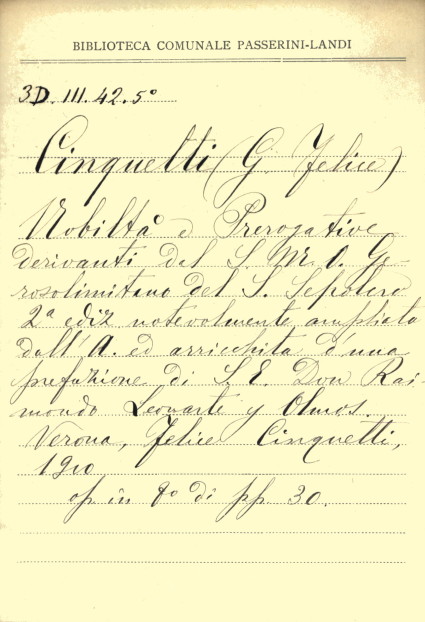 BIBLIOTECA COMUNALE PASSERINI-LANDI
3D. III. 42. 5°
Cinquetti (G. Felice)
Nobiltà e Prerogative
derivanti dal S. M. O. Ge-
rosolimitano del S. Sepolcro
2ª ediz notevolmente ampliata
dall'A. ed arricchita d'una
prefazione di S. E. Don Rai-
mondo Leonarte y Olmos.
Verona, Felice Cinquetti,
1910
op in 8° di pp 30.